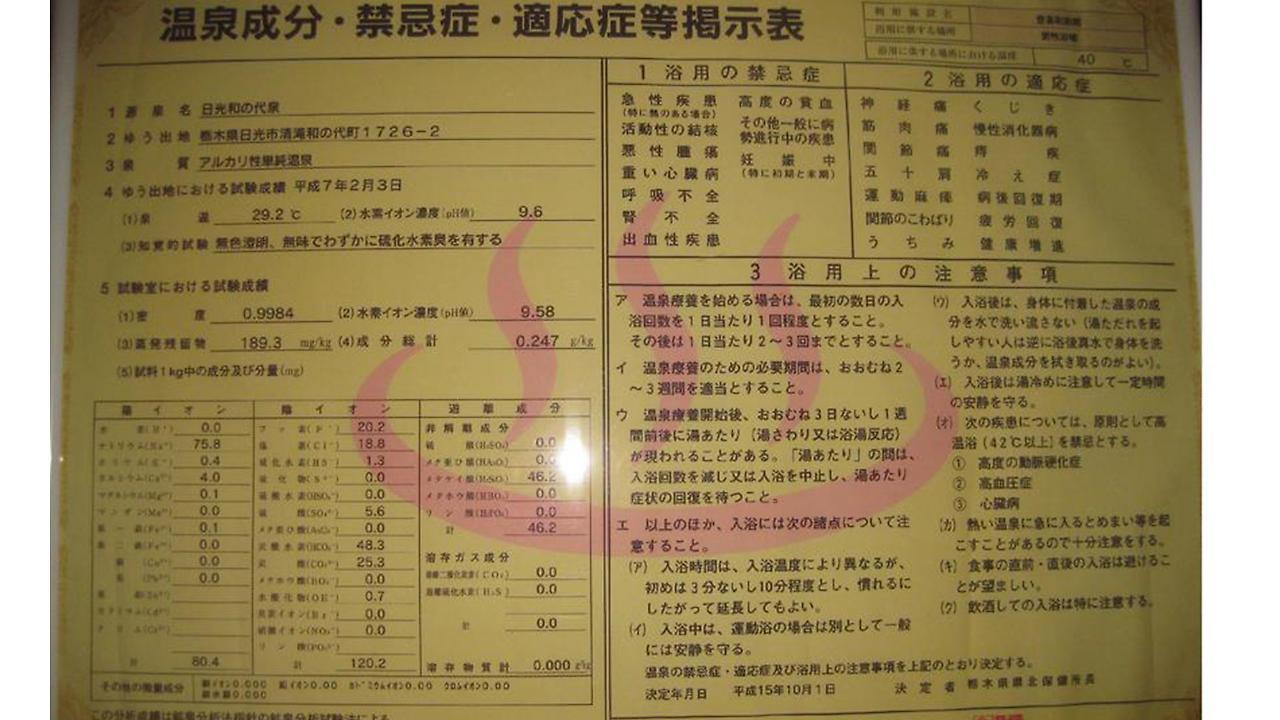 温泉成分・禁忌症・適応症等掲示表
利用施設名
浴用に供する場所
浴用に供する場所における温度 40 ℃
1 源泉名 日光和の代泉
2 ゆう出地 栃木県日光市清滝和の代町1726-2
3 泉質 アルカリ性単純温泉
4 ゆう出地における試験成績 平成7年2月3日
(1)泉温 29.2 ℃ (2)水素イオン濃度(pH値) 9.6
(3)知覚的試験 無色澄明、無味でわずかに硫化水素臭を有する
5 試験室における試験成績
(1)密度 0.9984 (2)水素イオン濃度(pH値) 9.58
(3)蒸発残留物 189.3 mg/kg (4)成分総計 0.247 g/kg
(5)試料1kg中の成分及び分量(mg)
陽イオン
水素(H⁺) 0.0
ナトリウム(Na⁺) 75.8
カリウム(K⁺) 0.4
カルシウム(Ca²⁺) 4.0
マグネシウム(Mg²⁺) 0.1
マンガン(Mn²⁺) 0.0
第一鉄(Fe²⁺) 0.1
第二鉄(Fe³⁺) 0.0
銅(Cu²⁺) 0.0
鉛(Pb²⁺) 0.0
計 80.4
陰イオン
フッ素(F⁻) 20.2
塩素(Cl⁻) 18.8
硫化水素(HS⁻) 1.3
硫化物(S²⁻) 0.0
硫酸水素(HSO₄⁻) 0.0
硫酸(SO₄²⁻) 5.6
メタ亜ひ酸(AsO₂⁻) 0.0
炭酸水素(HCO₃⁻) 48.3
炭酸(CO₃²⁻) 25.3
メタホウ酸(BO₂⁻) 0.0
水酸化物(OH⁻) 0.7
臭素イオン(Br⁻) 0.0
硝酸イオン(NO₃⁻) 0.0
リン酸(PO₄³⁻)
計 120.2
遊離成分
非解離成分
硫酸(H₂SO₄) 0.0
メタ亜ひ酸(HAsO₂) 0.0
メタケイ酸(H₂SiO₃) 46.2
メタホウ酸(HBO₂) 0.0
リン酸(H₃PO₄) 0.0
計 46.2
溶存ガス成分
遊離二酸化炭素(CO₂) 0.0
遊離硫化水素(H₂S) 0.0
計 0.0
溶存物質計 0.000 g/kg
その他の微量成分 銅イオン0.000 鉛イオン0.00 カドミウムイオン0.00 クロムイオン0.00
総水銀0.000
この分析成績は鉱泉分析法指針の鉱泉分析試験法による
1 浴用の禁忌症
急性疾患
(特に熱のある場合)
活動性の結核
悪性腫瘍
重い心臓病
呼吸不全
腎不全
出血性疾患
高度の貧血
その他一般に病
勢進行中の疾患
妊娠中
(特に初期と末期)
2 浴用の適応症
神経痛 くじき
筋肉痛 慢性消化器病
関節痛 痔疾
五十肩 冷え症
運動麻痺 病後回復期
関節のこわばり 疲労回復
うちみ 健康増進
3 浴用上の注意事項
ア 温泉療養を始める場合は、最初の数日の入
浴回数を1日当たり1回程度とすること。
その後は1日当たり2~3回までとすること。
イ 温泉療養のための必要期間は、おおむね2
~3週間を適当とすること。
ウ 温泉療養開始後、おおむね3日ないし1週
間前後に湯あたり(湯さわり又は浴湯反応)
が現われることがある。「湯あたり」の間は、
入浴回数を減じ又は入浴を中止し、湯あたり
症状の回復を待つこと。
エ 以上のほか、入浴には次の諸点について注
意すること。
(ア) 入浴時間は、入浴温度により異なるが、
初めは3分ないし10分程度とし、慣れるに
したがって延長してもよい。
(イ) 入浴中は、運動浴の場合は別として一般
には安静を守る。
(ウ) 入浴後は、身体に付着した温泉の成
分を水で洗い流さない(湯ただれを起
しやすい人は逆に浴後真水で身体を洗
うか、温泉成分を拭き取るのがよい)。
(エ) 入浴後は湯冷めに注意して一定時間
の安静を守る。
(オ) 次の疾患については、原則として高
温浴(42℃以上)を禁忌とする。
① 高度の動脈硬化症
② 高血圧症
③ 心臓病
(カ) 熱い温泉に急に入るとめまい等を起
こすことがあるので十分注意をする。
(キ) 食事の直前・直後の入浴は避けるこ
とが望ましい。
(ク) 飲酒しての入浴は特に注意する。
温泉の禁忌症・適応症及び浴用上の注意事項を上記のとおり決定する。
決定年月日 平成15年10月1日 決定者 栃木県県北保健所長